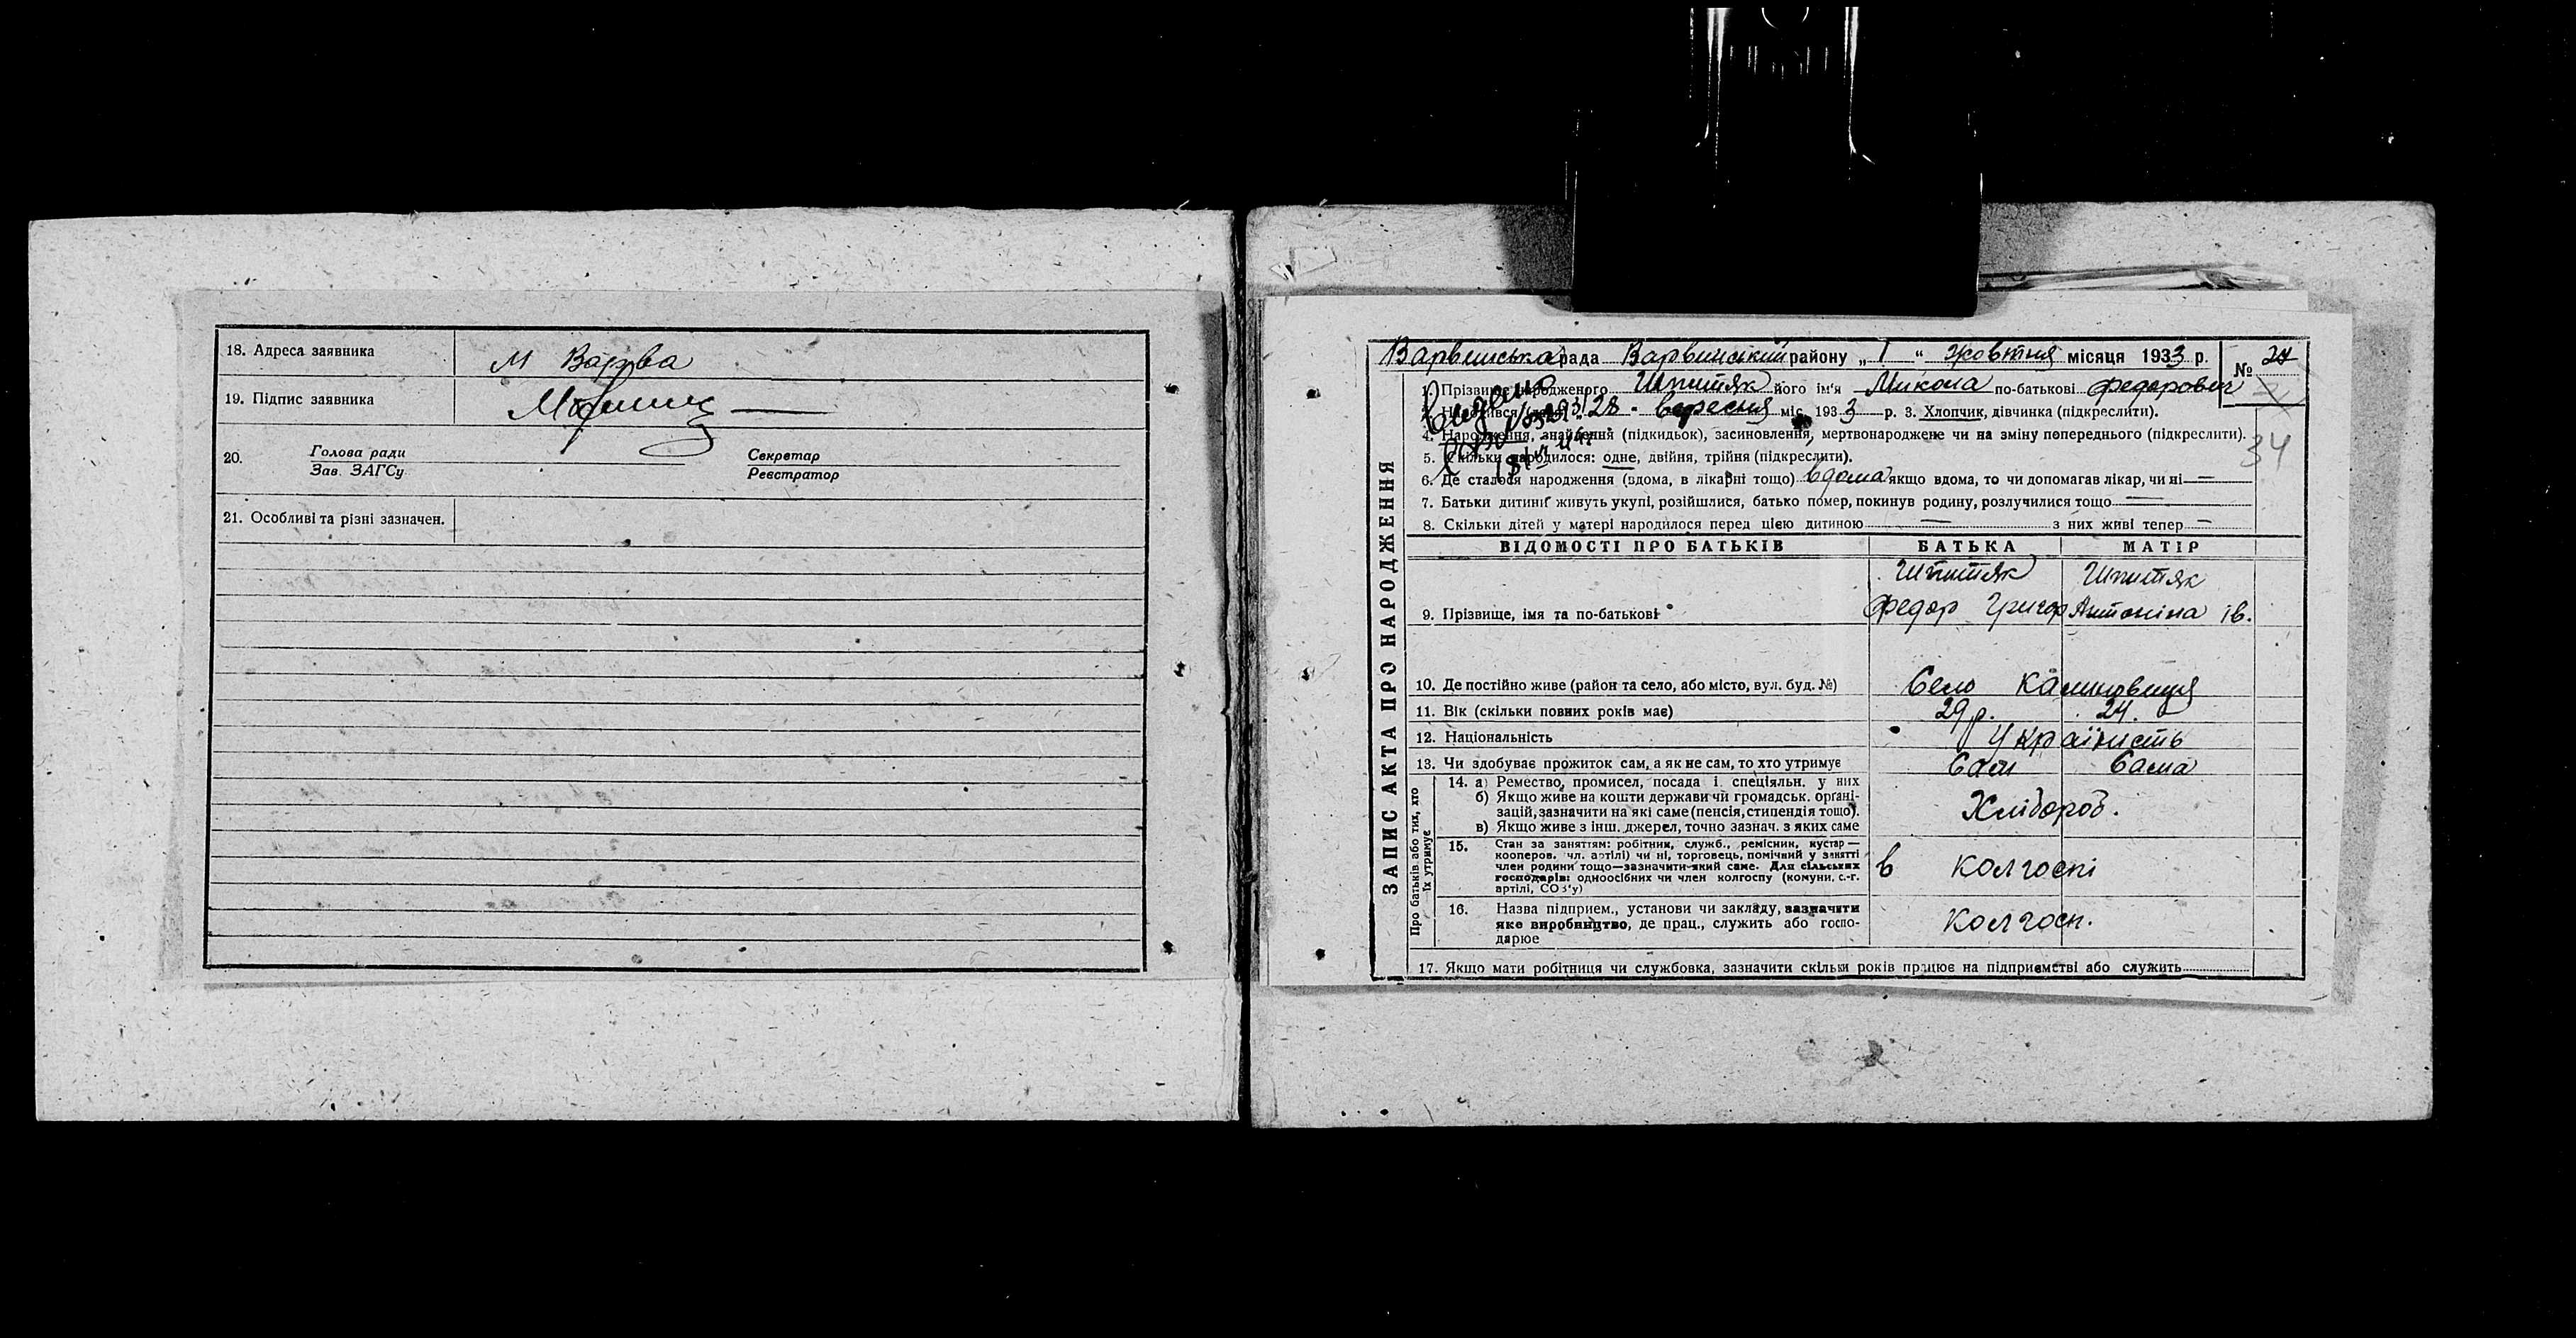 18. Адреса заявника м Варва
19. Підпис заявника
20. Голова ради Секретар
Зав. ЗАГСу Реєстратор
21. Особливі та різні зазначен.
ЗАПИС АКТА ПРО НАРОДЖЕННЯ
Варвинська рада Варвинський району „1“ жовтня місяця 1933 р. № 24
1. Прізвище народженого Шпитяк його ім'я Микола по-батькові Федорович
2. Народився 28 вересня міс. 1933 р. 3. Хлопчик, дівчинка (підкреслити).
Видано
4. Народження, знайдення (підкидьок), засиновлення, мертвонароджене чи на зміну попереднього (підкреслити).
34
5. Скільки народилося: одне, двійня, трійня (підкреслити).
6. Де сталося народження (вдома, в лікарні тощо) вдома якщо вдома, то чи допомагав лікар, чи ні —
7. Батьки дитини живуть укупі, розійшлися, батько помер, покинув родину, розлучилися тощо —
8. Скільки дітей у матері народилося перед цією дитиною — з них живі тепер —
ВІДОМОСТІ ПРО БАТЬКІВ БАТЬКА МАТІР
Шпитяк Шпитяк
9. Прізвище, імя та по-батькові Федор Григор Антоніна Ів.
10. Де постійно живе (район та село, або місто, вул. буд. №) Село Калиновиця
11. Вік (скільки повних років має) 29 р. 24.
12. Національність Україність
13. Чи здобуває прожиток сам, а як не сам, то хто утримує Сам Сама
Про батьків або тих, хто їх утримує
14. а) Ремество, промисел, посада і спеціяльн. у них
б) Якщо живе на кошти держави чи громадськ. органі-
зацій, зазначити на які саме (пенсія, стипендія тощо). Хлібороб.
в) Якщо живе з інш. джерел, точно зазнач. з яких саме
15. Стан за заняттям: робітник, служб., ремісник, кустар —
кооперов. чл. артілі) чи ні, торговець, помічний у занятті
член родини тощо—зазначити який саме. Для сільських в колгоспі
господарів: одноосібних чи член колгоспу (комуни, с.-г.
артілі, СОЗ'у)
16. Назва підприєм., установи чи закладу, зазначити
яке виробництво, де прац., служить або госпо- колгосп.
дарює
17. Якщо мати робітниця чи службовка, зазначити скільки років працює на підприємстві або служить